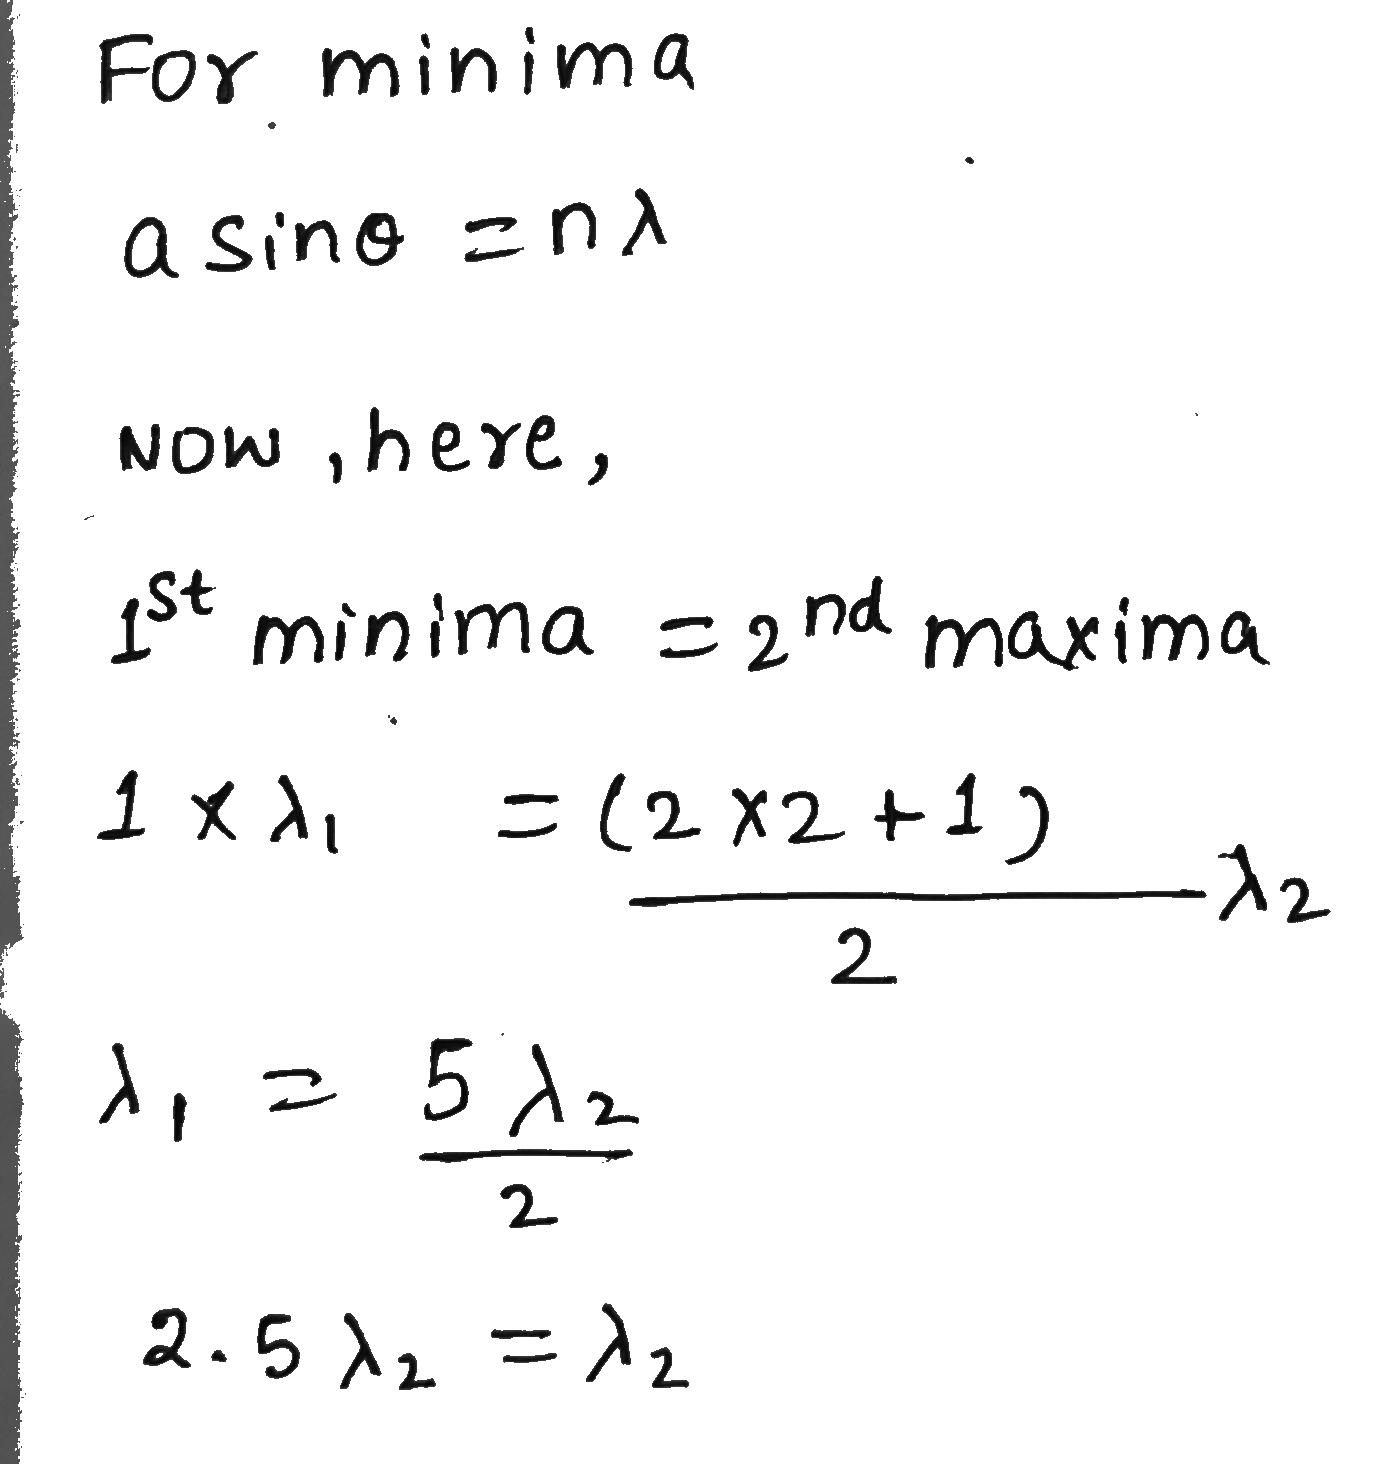 For minima
a sinθ = nλ
Now, here,
1st minima = 2nd maxima
1 × λ1 = (2×2+1)/2 λ2
λ1 = 5λ2/2
2.5 λ2 = λ2